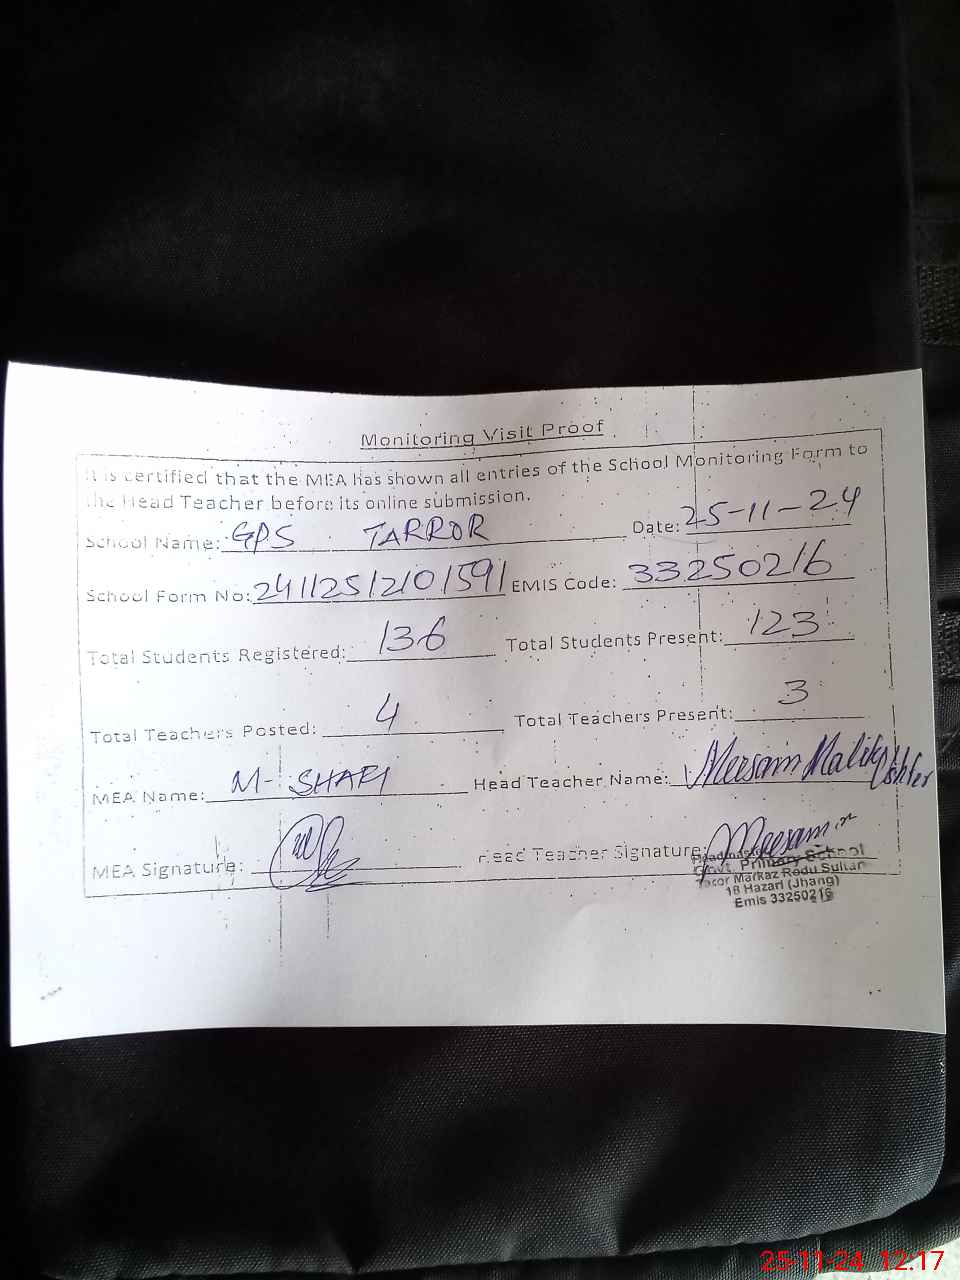 Monitoring Visit Proof
It is certified that the MEA has shown all entries of the School Monitoring Form to
the Head Teacher before its online submission.
School Name: GPS TARROR Date: 25-11-24
School Form No: 24112512101591 EMIS Code: 33250216
Total Students Registered: 136 Total Students Present: 123
Total Teachers Posted: 4 Total Teachers Present: 3
MEA Name: M- SHAFI Head Teacher Name: Meesam Malik
MEA Signature: Head Teacher Signature: Meesam
Govt. Primary School
Markaz Rodu Sultan
18 Hazari (Jhang)
Emis 33250216
25-11-24 12:17